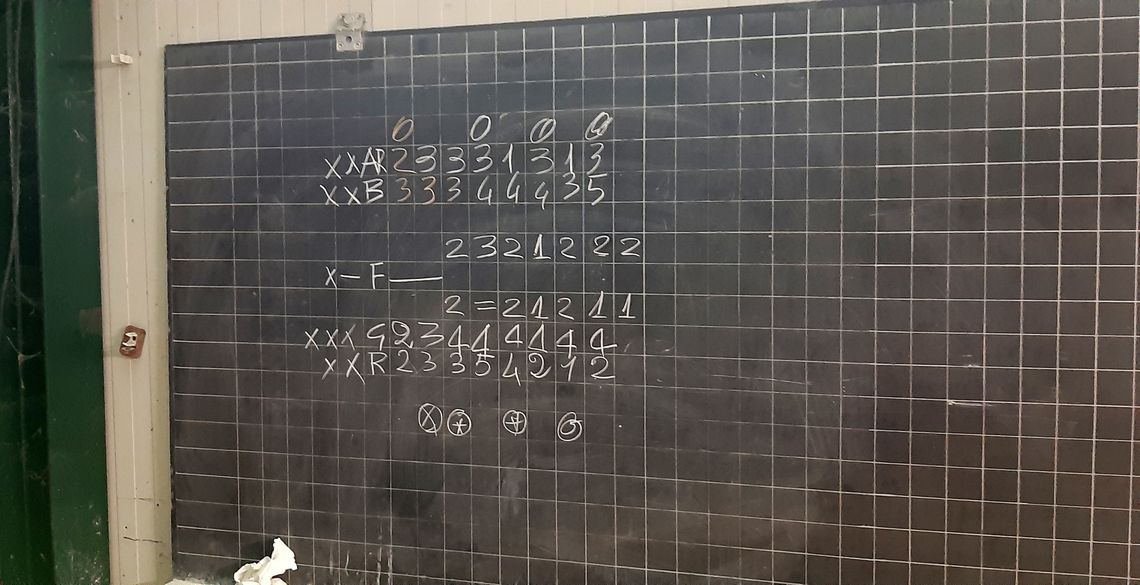 0 0 0 0
XXAR 2 3 3 3 1 3 1 3
XXB 3 3 3 4 4 4 3 5
2 3 2 1 2 2 2
X-F—
2=2 1 2 1 1
XXXG 2 3 4 4 4 4 4 4
XXR 2 3 3 5 4 2 1 2